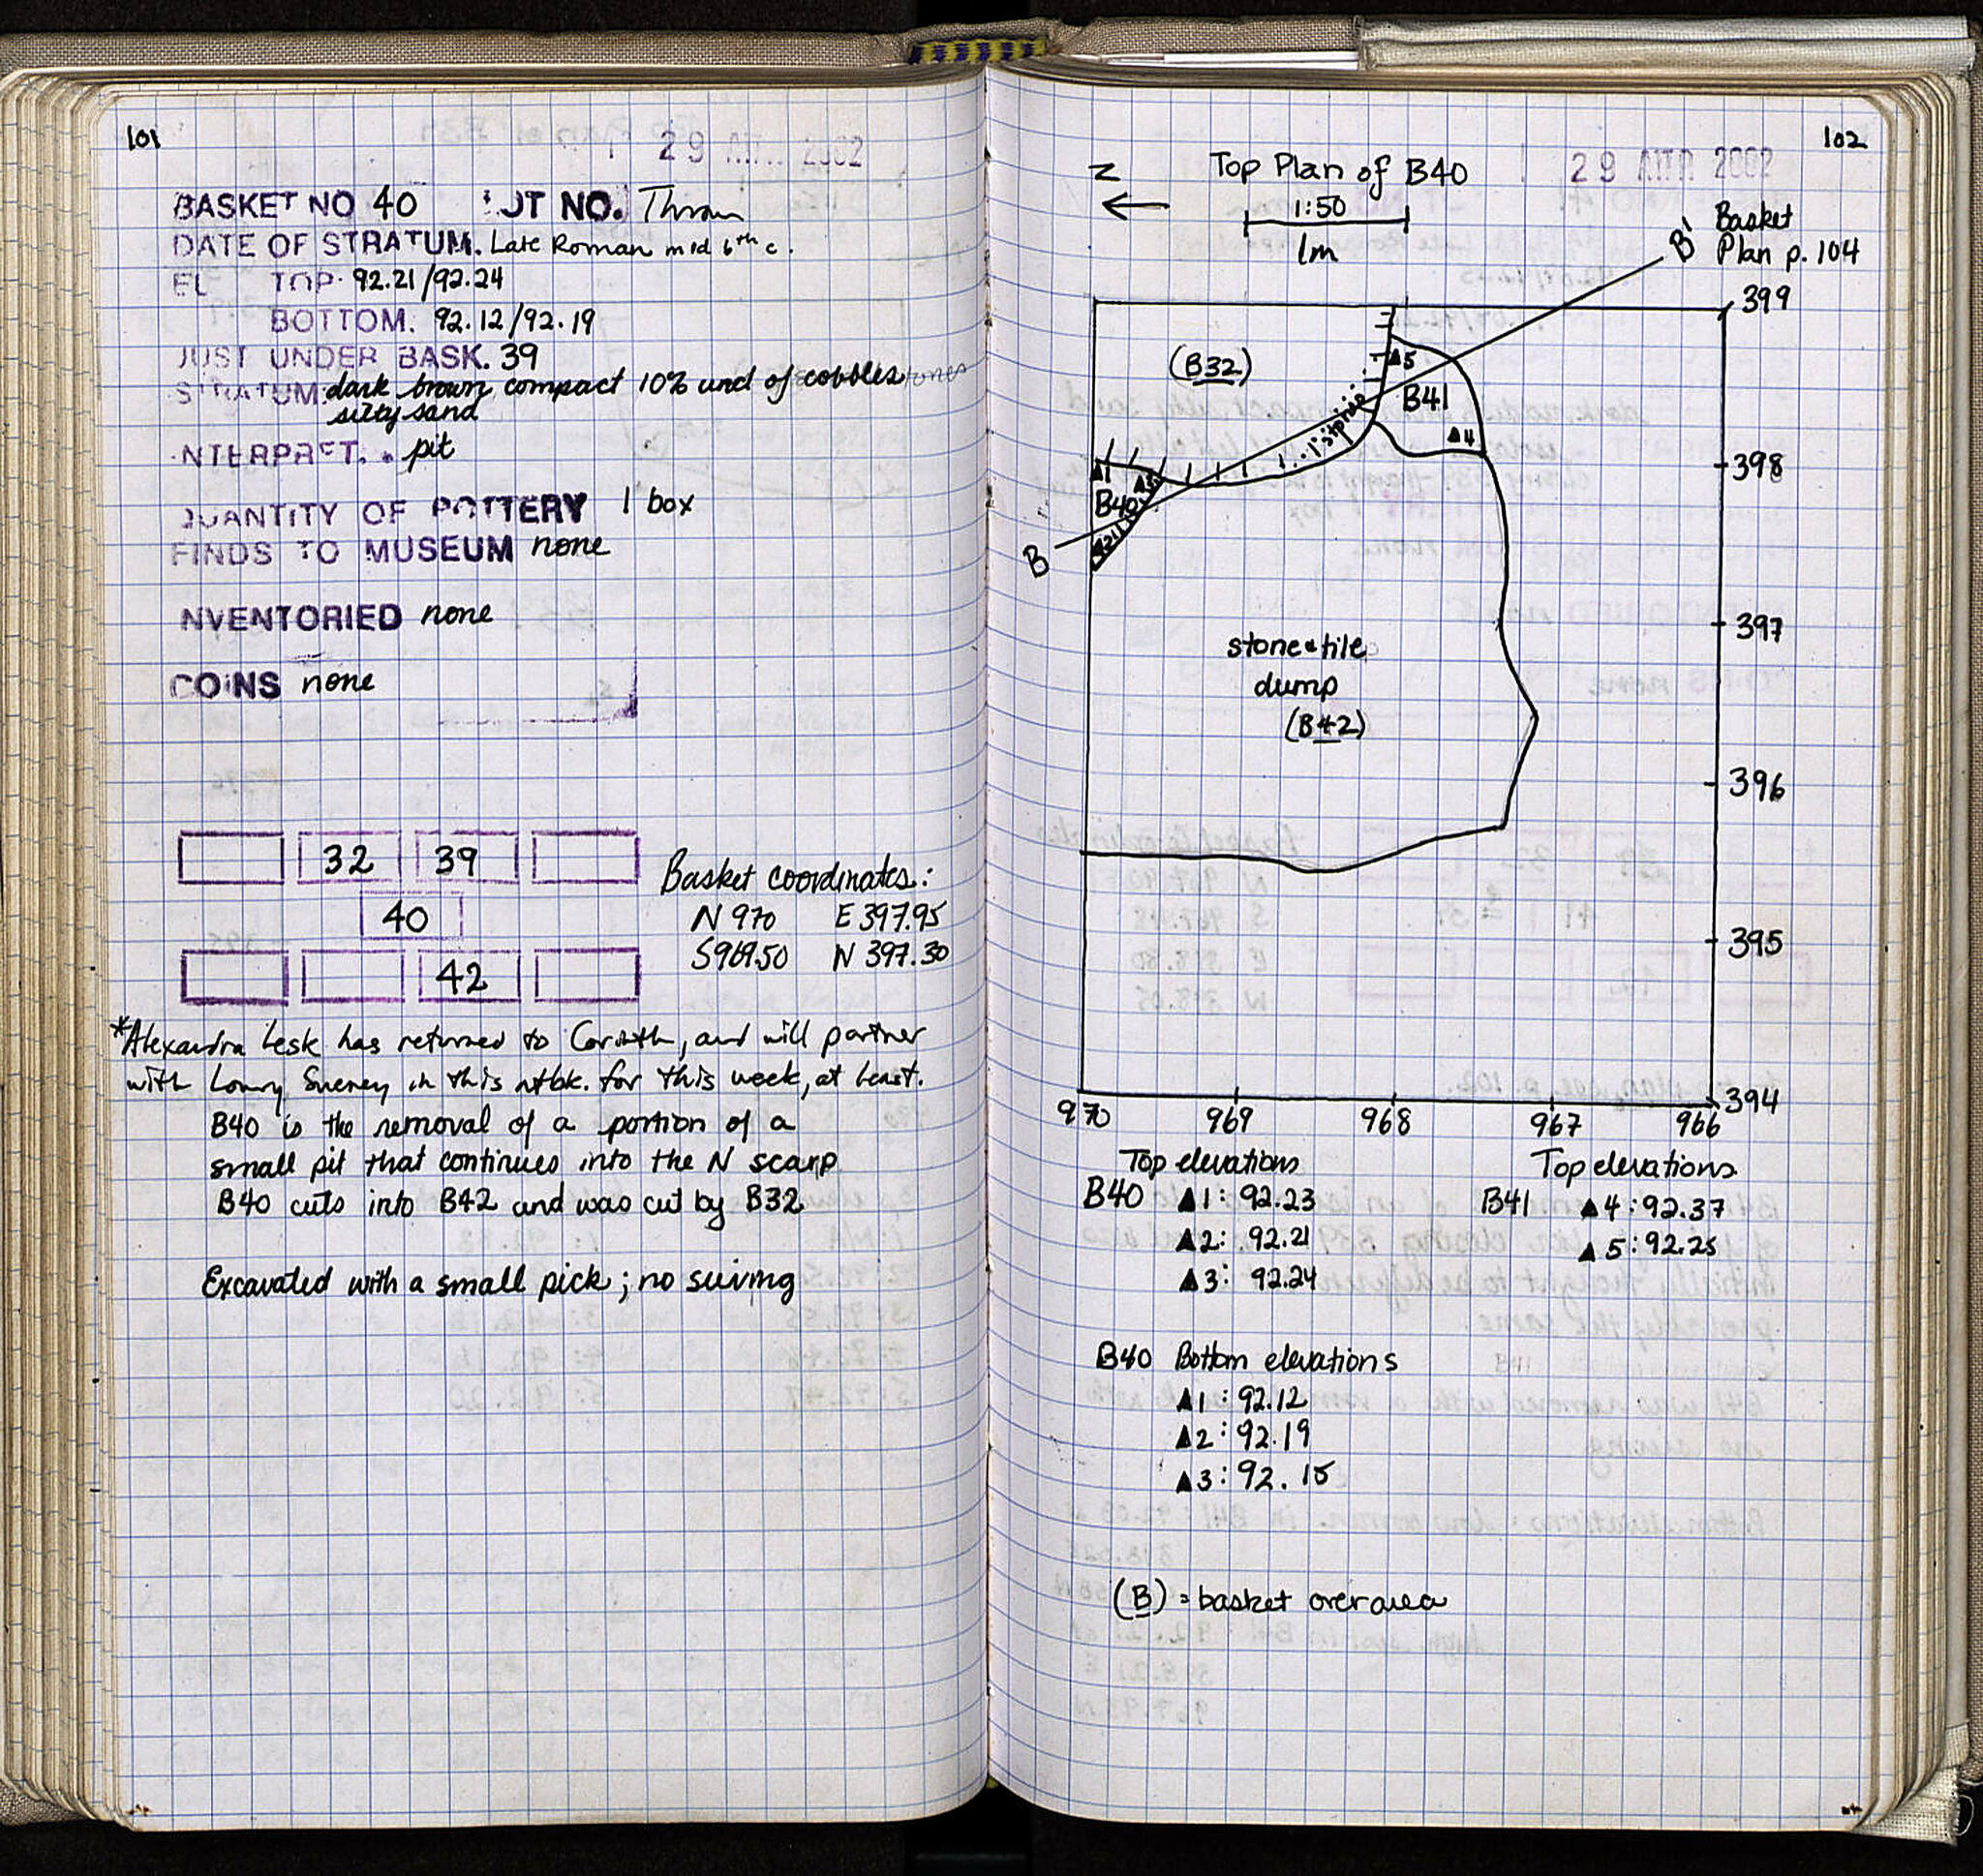 101
29 ΑΠΡ. 2002
BASKET NO 40 OT NO. Thran
DATE OF STRATUM. Late Roman mid 6th c.
EL TOP. 92.21/92.24
BOTTOM. 92.12/92.19
JUST UNDER BASK. 39
STRATUM dark brown compact 10% und of cobbles
silty sand
NTERPRET. pit
QUANTITY OF POTTERY 1 box
FINDS TO MUSEUM none
NVENTORIED none
COINS none
32 39
40
42
Basket coordinates:
N 970 E 397.95
S969.50 N 397.30
*Alexandra Lesk has returned to Corinth, and will partner
with Lowry Sweney in this ntbk. for this week, at least.
B40 is the removal of a portion of a
small pit that continues into the N scarp
B40 cuts into B42 and was cut by B32
Excavated with a small pick; no seiving
102
29 ΑΠΡ 2002
N
Top Plan of B40
1:50
1m
B' Basket
Plan p. 104
399
(B32)
5
B41
4
398
1
3
B40
2
B
397
stone & tile
dump
(B42)
396
395
394
970 969 968 967 966
Top elevations
B40 ▲1: 92.23
▲2: 92.21
▲3: 92.24
Top elevations
B41 ▲4: 92.37
▲5: 92.25
B40 Bottom elevations
▲1: 92.12
▲2: 92.19
▲3: 92.15
(B) = basket over area